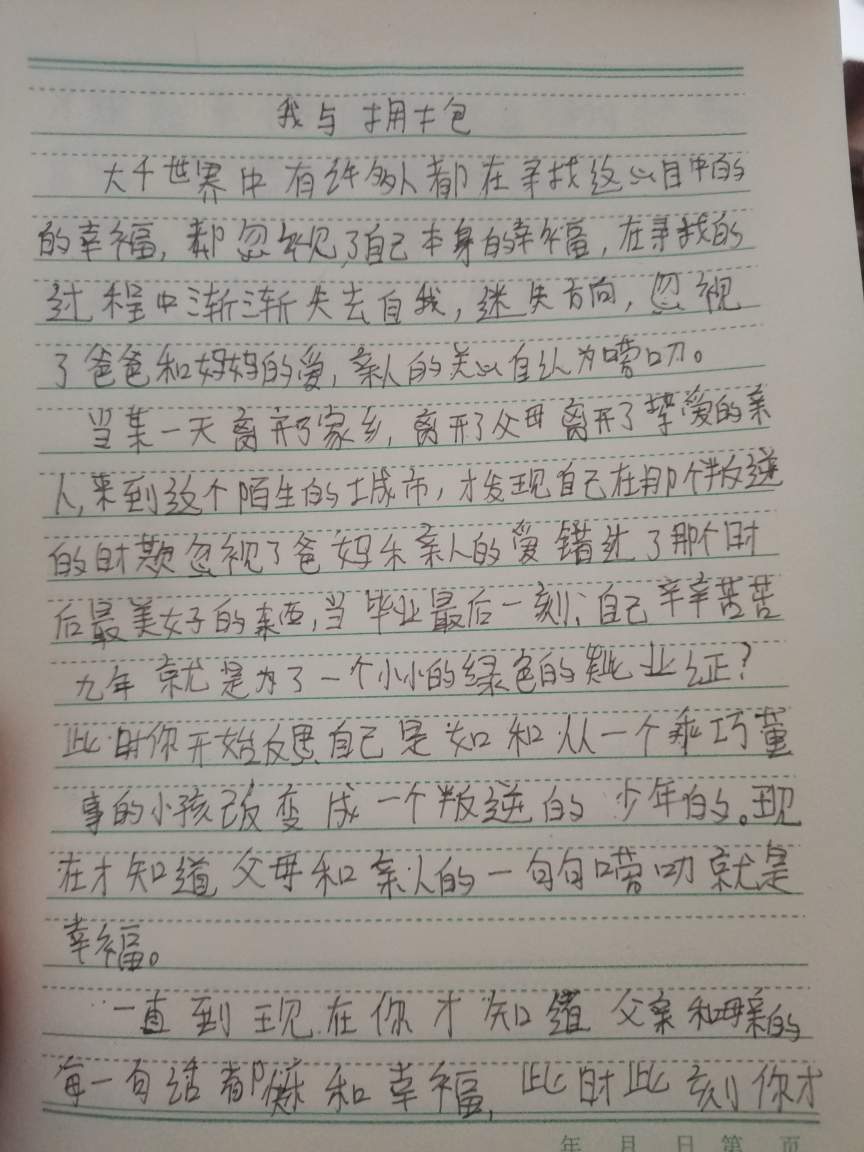 我与拥抱
大千世界中有许多人都在寻找这心目中的
的幸福，都忽视了自己本身的幸福，在寻找的
过程中渐渐失去自我，迷失方向，忽视
了爸爸和妈妈的爱，亲人的关心自认为唠叨。
当某一天离开了家乡，离开了父母离开了挚爱的亲
人，来到这个陌生的城市，才发现自己在那个叛逆
的时期忽视了爸妈和亲人的爱错过了那个时
后最美好的东西，当毕业最后一刻；自己辛辛苦苦
九年就是为了一个小小的绿色的毕业证？
此时你开始反思自己是如和从一个乖巧董
事的小孩改变成一个叛逆的少年的。现
在才知道父母和亲人的一句句唠叨就是
幸福。
一直到现在你才知道父亲和母亲的
每一句话都和幸福，此时此刻你才
年 月 日 第 页